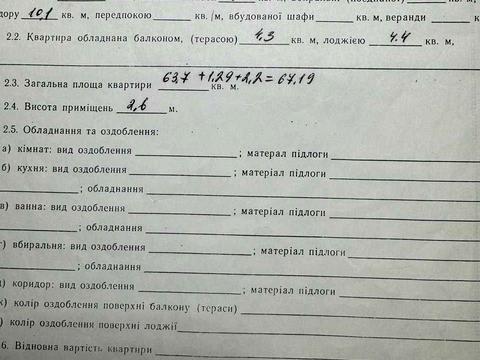 дору 10,1 кв. м, передпокою ____ кв. м, вбудованої шафи ____ кв. м, веранди ____ к
2.2. Квартира обладнана балконом, (терасою) 4,3 кв. м, лоджією 4.4 кв. м,
2.3. Загальна площа квартири 63,7 + 1,29 + 2,2 = 67,19 кв. м.
2.4. Висота приміщень 2,6 м.
2.5. Обладнання та оздоблення:
а) кімнат: вид оздоблення ____ ; матерал підлоги ____
б) кухня: вид оздоблення ____ ; матеріал підлоги ____
____ ; обладнання ____
в) ванна: вид оздоблення ____ ; матеріал підлоги ____
____ ; обладнання ____
г) вбиральня: вид оздоблення ____ ; матеріал підлоги ____
____ ; обладнання ____
д) коридор: вид оздоблення ____ ; матеріал підлоги ____
) колір оздоблення поверхні балкону (тераси) ____
) колір оздоблення поверхні лоджії ____
6. Відновна вартість квартири ____